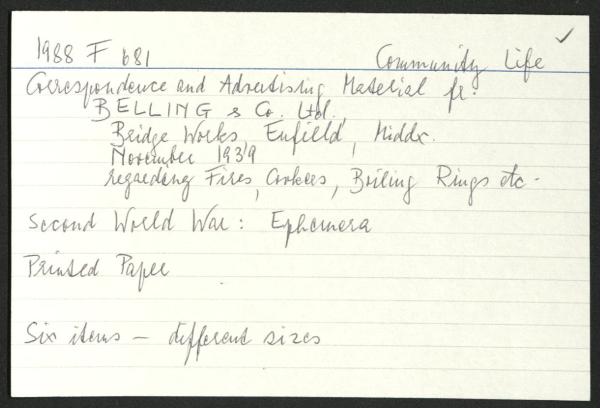 1988 F 681 Community Life ✓
Correspondence and Advertising Material fr.
BELLING & Co. Ltd.,
Bridge Works, Enfield, Middx.
November 1939
regarding Fires, Cookers, Boiling Rings etc.
Second World War: Ephemera
Printed Paper
Six items – different sizes